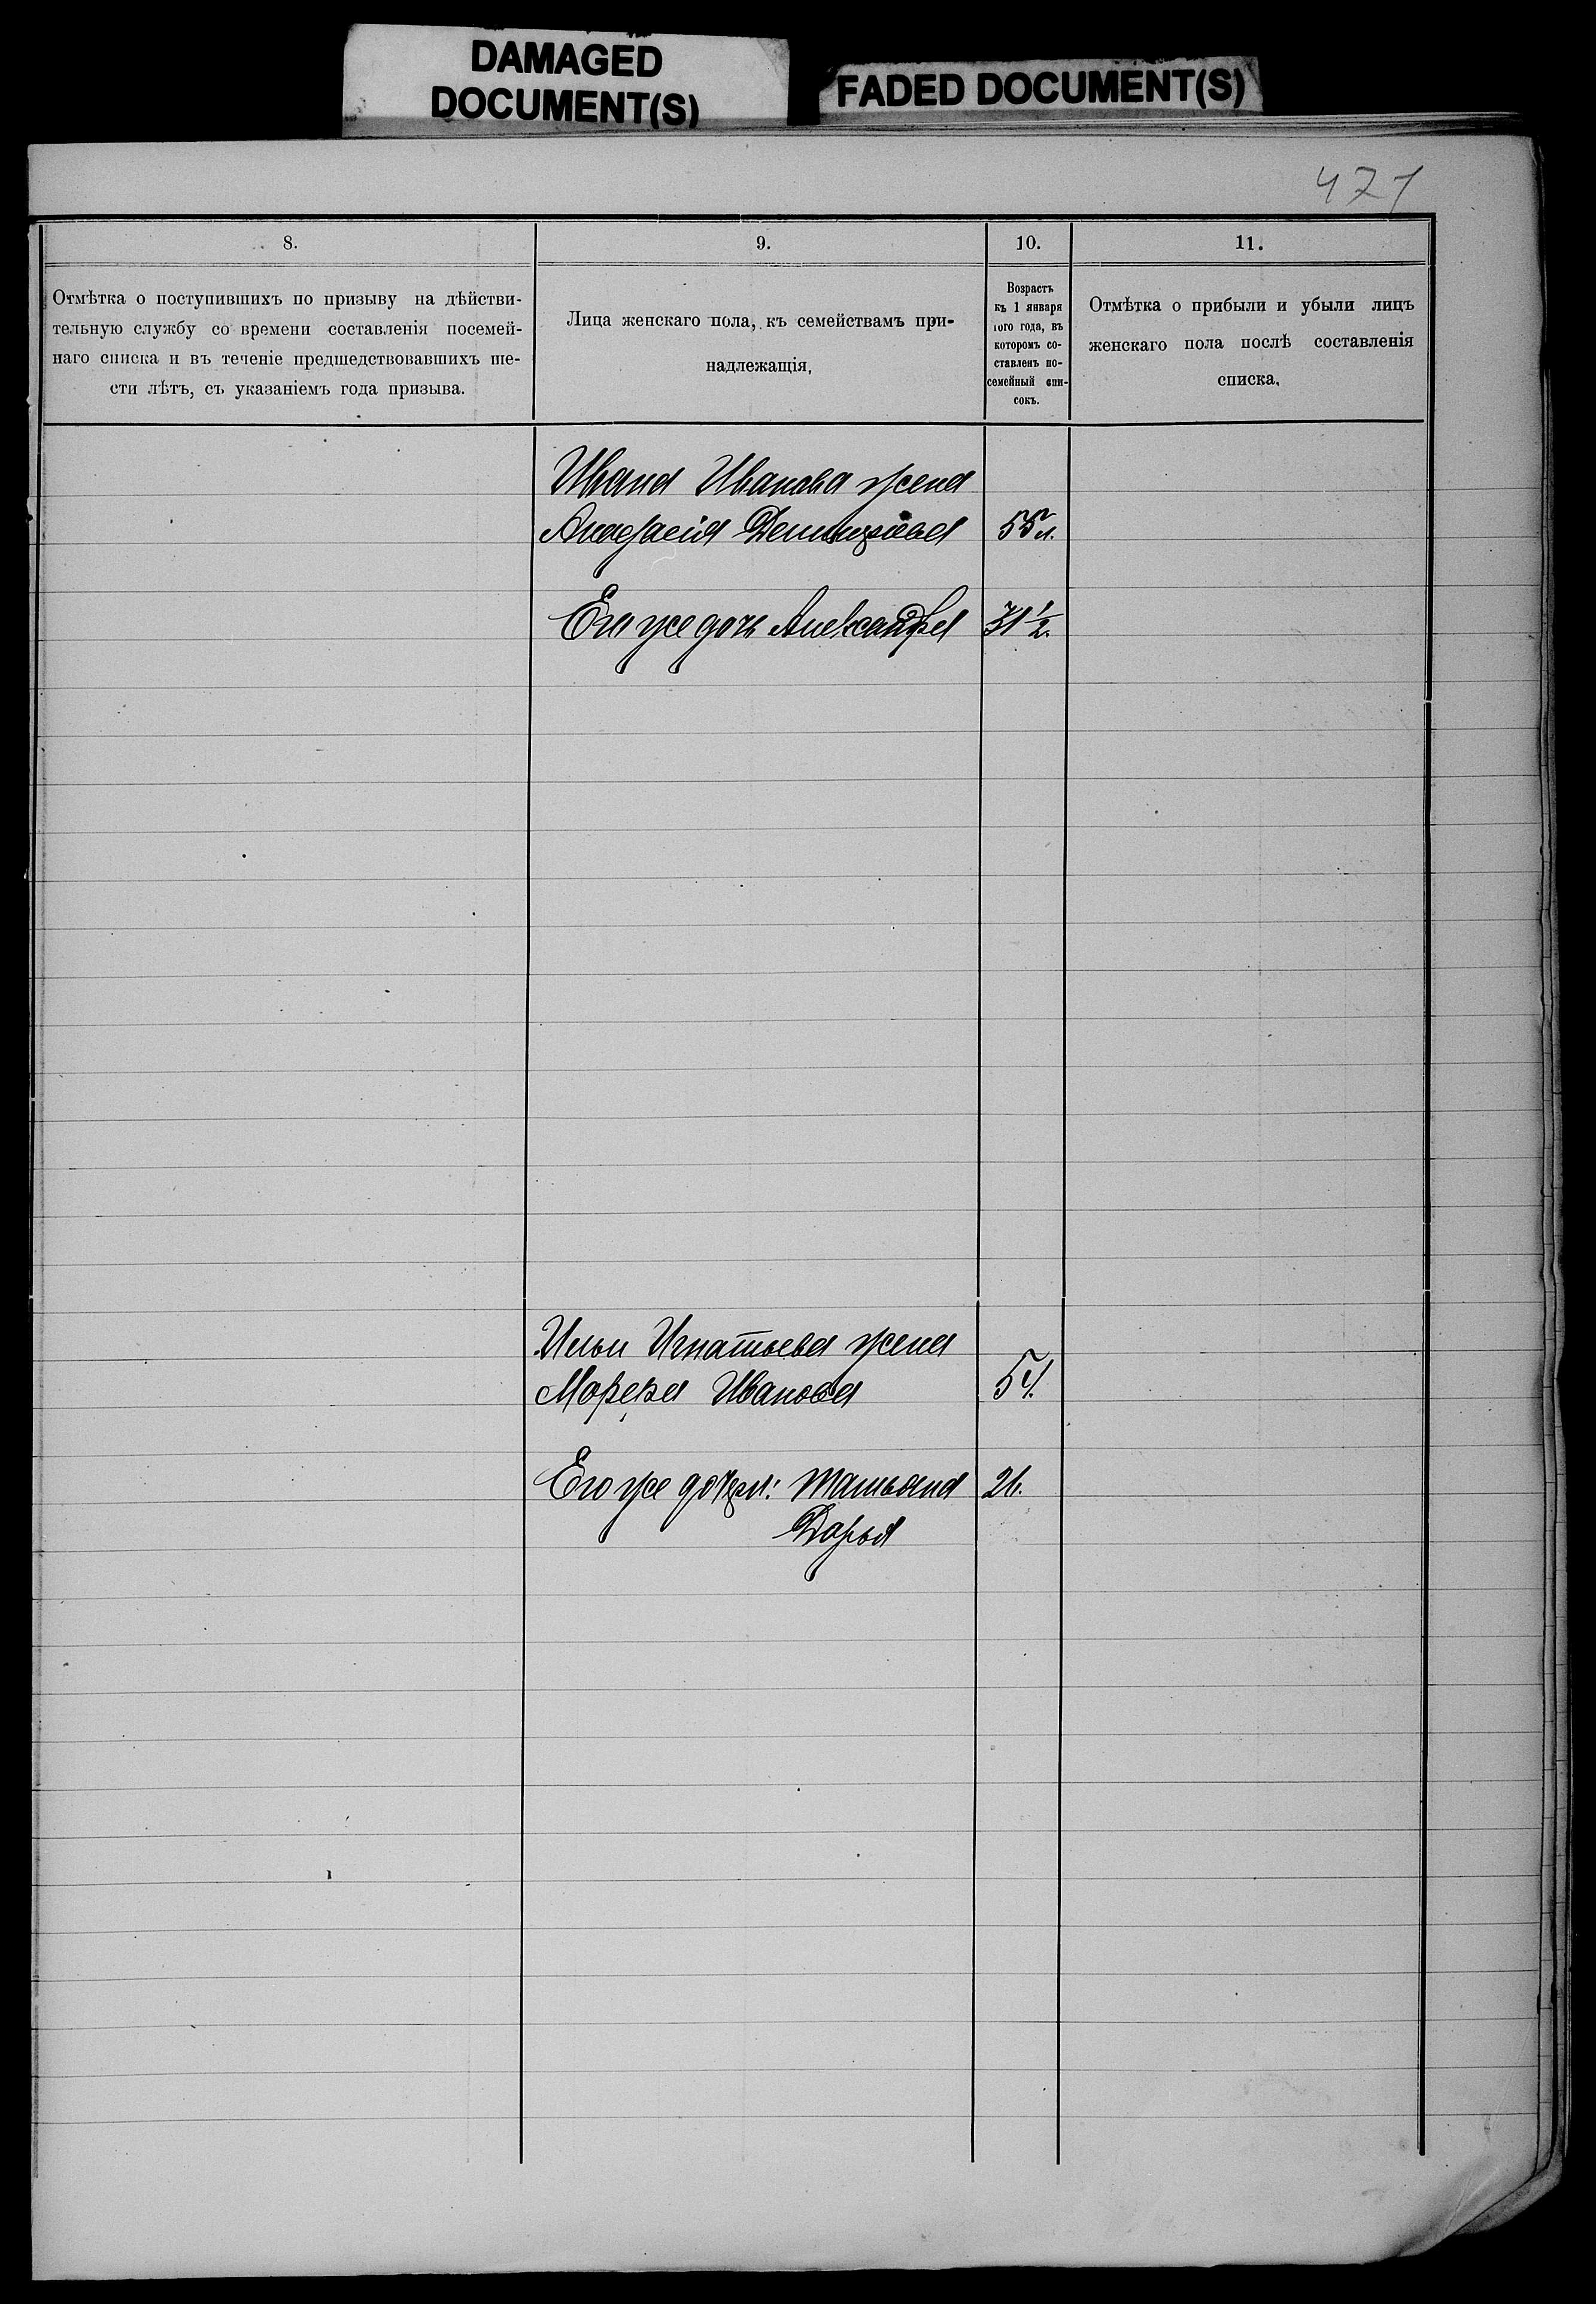 DAMAGED
DOCUMENT(S)
FADED DOCUMENT(S)
471
8.
9.
10.
11.
Отмѣтка о поступившихъ по призыву на дѣйстви-
тельную службу со времени составленія посемей-
наго списка и въ теченіе предшедствовавшихъ ше-
сти лѣтъ, съ указаніемъ года призыва.
Лица женскаго пола, къ семействамъ при-
надлежащія,
Возрастъ
къ 1 января
того года, въ
которомъ со-
ставленъ по-
семейный спи-
сокъ.
Отмѣтка о прибыли и убыли лицъ
женскаго пола послѣ составленія
списка,
Ивана Иванова жена
55 л.
Его же дочь Александра 31 1/2.
Ильи Игнатьева жена
Марѳа Иванова
Его же дочери: Татьяна 26.
Дарья